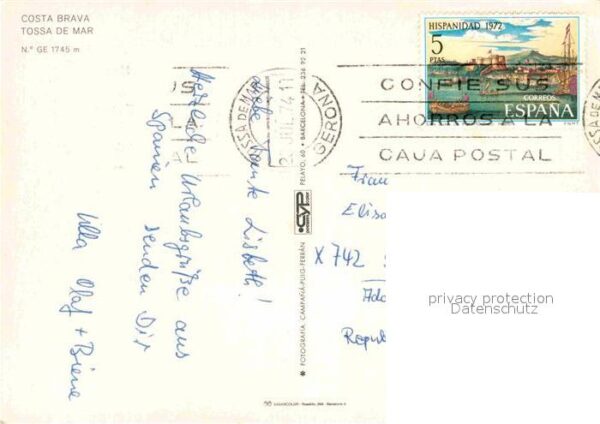 COSTA BRAVA
TOSSA DE MAR
N.° GE 1745 m
HISPANIDAD 1972
5
PTAS
CORREOS
ESPAÑA
TOSSA DE MAR
JUL. 74 11
GERONA
CONFIE SUS
AHORROS A LA
CAJA POSTAL
Liebe Tante Lisbeth!
Herzliche Urlaubsgrüße aus
Spanien senden Dir
Ulla Olaf + Biene
PELAYO, 60 • BARCELONA • TEL. 236 92 21
CYP
FOTOGRAFIA CAMPAÑÁ-PUIG-FERRÁN
Frau
Elisa
X 742
Republ
privacy protection
Datenschutz